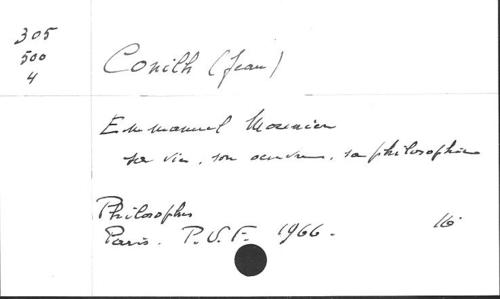 305
500
4
Conilh (Jean)
Emmanuel Mounier
sa vie, son oeuvre, sa philosophie
Philosophes
Paris. P.U.F. 1966. 16°